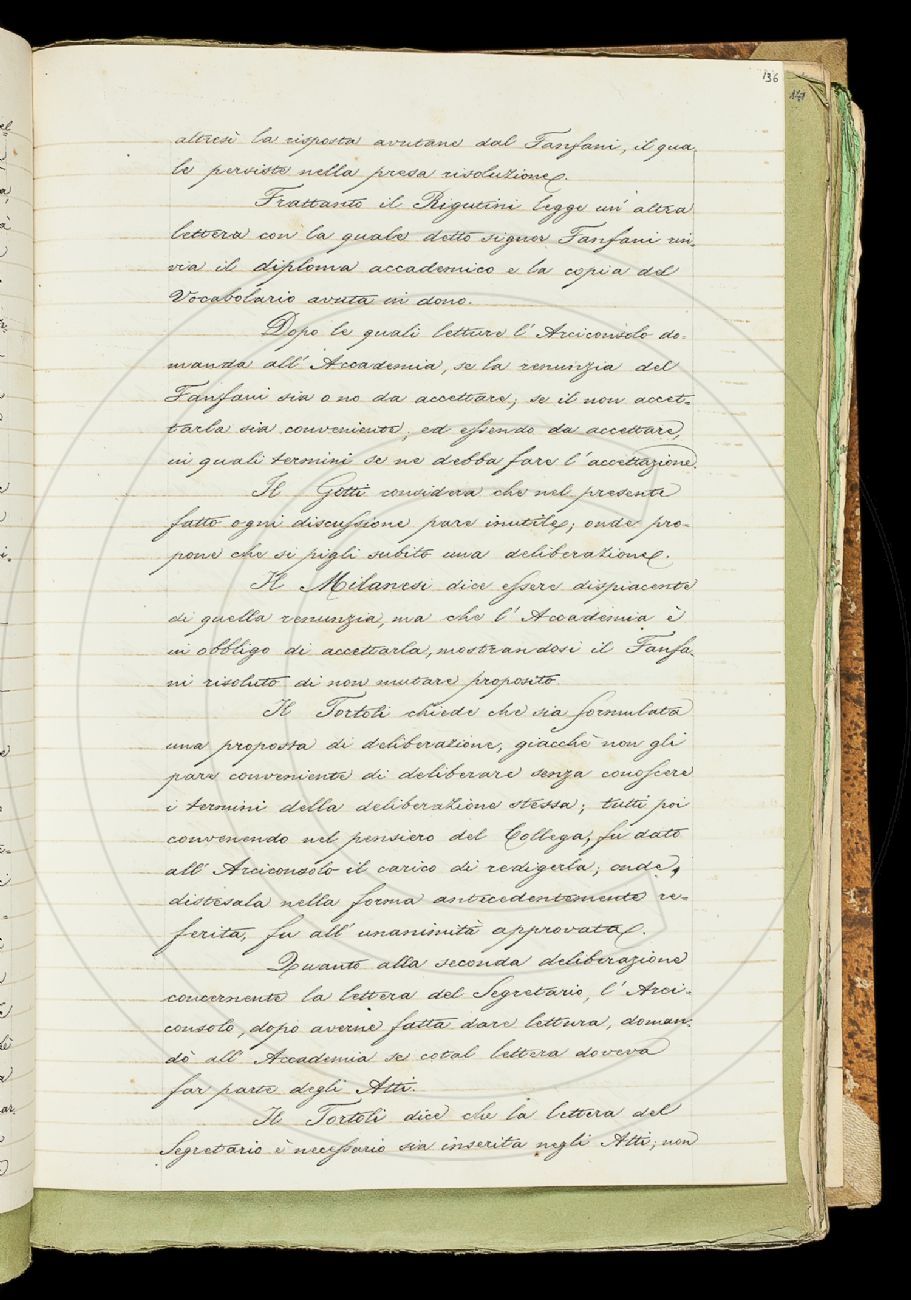 136
altresì la risposta avutane dal Fanfani, il qua-
le persiste nella presa risoluzione.
Frattanto il Rigutini legge un' altra
lettera con la quale detto signor Fanfani rin-
via il diploma accademico e la copia del
Vocabolario avuta in dono.
Dopo le quali letture l' Arciconsolo do-
manda all' Accademia, se la renunzia del
Fanfani sia o no da accettare; se il non accet-
tarla sia conveniente; ed essendo da accettare,
in quali termini se ne debba fare l' accettazione.
Il Gotti considera che nel presente
fatto ogni discussione pare inutile; onde pro-
pone che si pigli subito una deliberazione.
Il Milanesi dice essere dispiacente
di quella renunzia, ma che l' Accademia è
in obbligo di accettarla, mostrandosi il Fanfa-
ni risoluto di non mutare proposito.
Il Tortoli chiede che sia formulata
una proposta di deliberazione, giacchè non gli
pare conveniente di deliberare senza conoscere
i termini della deliberazione stessa; tutti poi
convenendo nel pensiero del Collega, fu dato
all' Arciconsolo il carico di redigerla; onde,
distesala nella forma antecedentemente re-
ferita, fu all' unanimità approvata.
Quanto alla seconda deliberazione
concernente la lettera del Segretario, l' Arci-
consolo, dopo averne fatta dare lettura, doman-
dò all' Accademia se cotal lettera doveva
far parte degli Atti.
Il Tortoli dice che la lettera del
Segretario è necessario sia inserita negli Atti; non